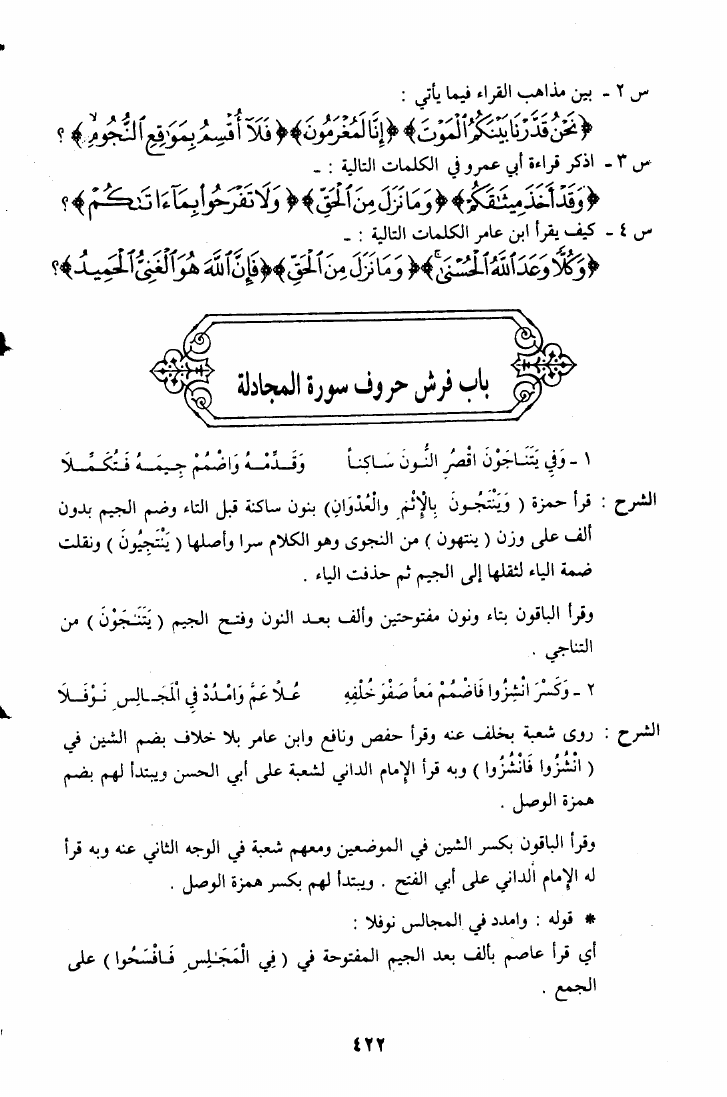 س ٢ - بين مذاهب القراء فيما يأتي :
﴿نَحْنُ قَدَّرْنَا بَيْنَكُمُ الْمَوْتَ﴾ ﴿إِنَّا لَمُغْرَمُونَ﴾ ﴿فَلَآ أُقْسِمُ بِمَوَاقِعِ النُّجُومِ﴾ ؟
س ٣ - اذكر قراءة أبي عمرو في الكلمات التالية : -
﴿وَقَدْ أَخَذَ مِيثَاقَكُمْ﴾ ﴿وَمَا نَزَلَ مِنَ الْحَقِّ﴾ ﴿وَلَا تَفْرَحُوا بِمَآ ءَاتَاكُمْ﴾ ؟
س ٤ - كيف يقرأ ابن عامر الكلمات التالية : -
﴿وَكُلًّا وَعَدَ اللَّهُ الْحُسْنَىٰ﴾ ﴿وَمَا نَزَلَ مِنَ الْحَقِّ﴾ ﴿فَإِنَّ اللَّهَ هُوَ الْغَنِيُّ الْحَمِيدُ﴾ ؟
باب فرش حروف سورة المجادلة
١ - وَفِي يَتَنَاجَوْنَ اقْصُرِ النُّونَ سَاكِناً وَقَدِّمْهُ وَاضْمُمْ جِيمَهُ فَتُكَمِّلَا
الشرح : قرأ حمزة ( وَيَنْتَجُونَ بِالْإِثْمِ والْعُدْوَانِ) بنون ساكنة قبل التاء وضم الجيم بدون
ألف على وزن ( ينتهون ) من النجوى وهو الكلام سرا وأصلها ( يَنْتَجِيُونَ ) ونقلت
ضمة الياء لثقلها إلى الجيم ثم حذفت الياء .
وقرأ الباقون بتاء ونون مفتوحتين وألف بعد النون وفتح الجيم ( يَتَنَـٰجَوْنَ ) من
التناجي .
٢ - وَكَسْرَ انْشِزُوا فَاضْمُمْ مَعاً صَفْوَ خُلْفِهِ عُلاً عَمَّ وَامْدُدْ فِي الْمَجَالِسِ نَوْفَلَا
الشرح : روى شعبة بخلف عنه وقرأ حفص ونافع وابن عامر بلا خلاف بضم الشين في
( انْشُزُوا فَانْشُزُوا ) وبه قرأ الإمام الداني لشعبة على أبي الحسن ويبتدأ لهم بضم
همزة الوصل .
وقرأ الباقون بكسر الشين في الموضعين ومعهم شعبة في الوجه الثاني عنه وبه قرأ
له الإمام الداني على أبي الفتح . ويبتدأ لهم بكسر همزة الوصل .
* قوله : وامدد في المجالس نوفلا :
أي قرأ عاصم بألف بعد الجيم المفتوحة في ( فِي الْمَجَـٰلِسِ فَـافْسَحُوا ) على
الجمع .
٤٢٢